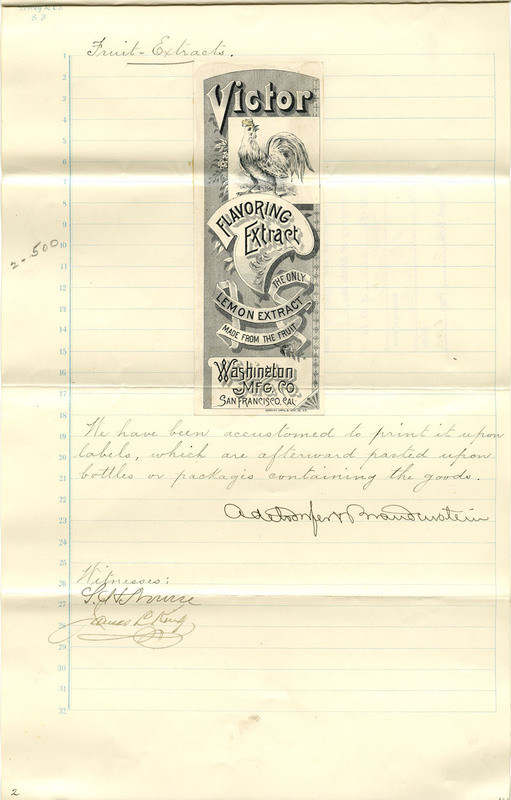 Fruit-Extracts.
Victor
FLAVORING
Extract
THE ONLY
LEMON EXTRACT
MADE FROM THE FRUIT
Washington
MFG. CO.
SAN FRANCISCO, CAL
2-500
1
2
3
4
5
6
7
8
9
10
11
12
13
14
15
16
17
18
19
20
21
22
23
24
25
26
27
28
29
30
31
32
We have been accustomed to print it upon
labels, which are afterward pasted upon
bottles or packages containing the goods.
Adelsdorfer & Brandenstein
Witnesses:
James L. King
2